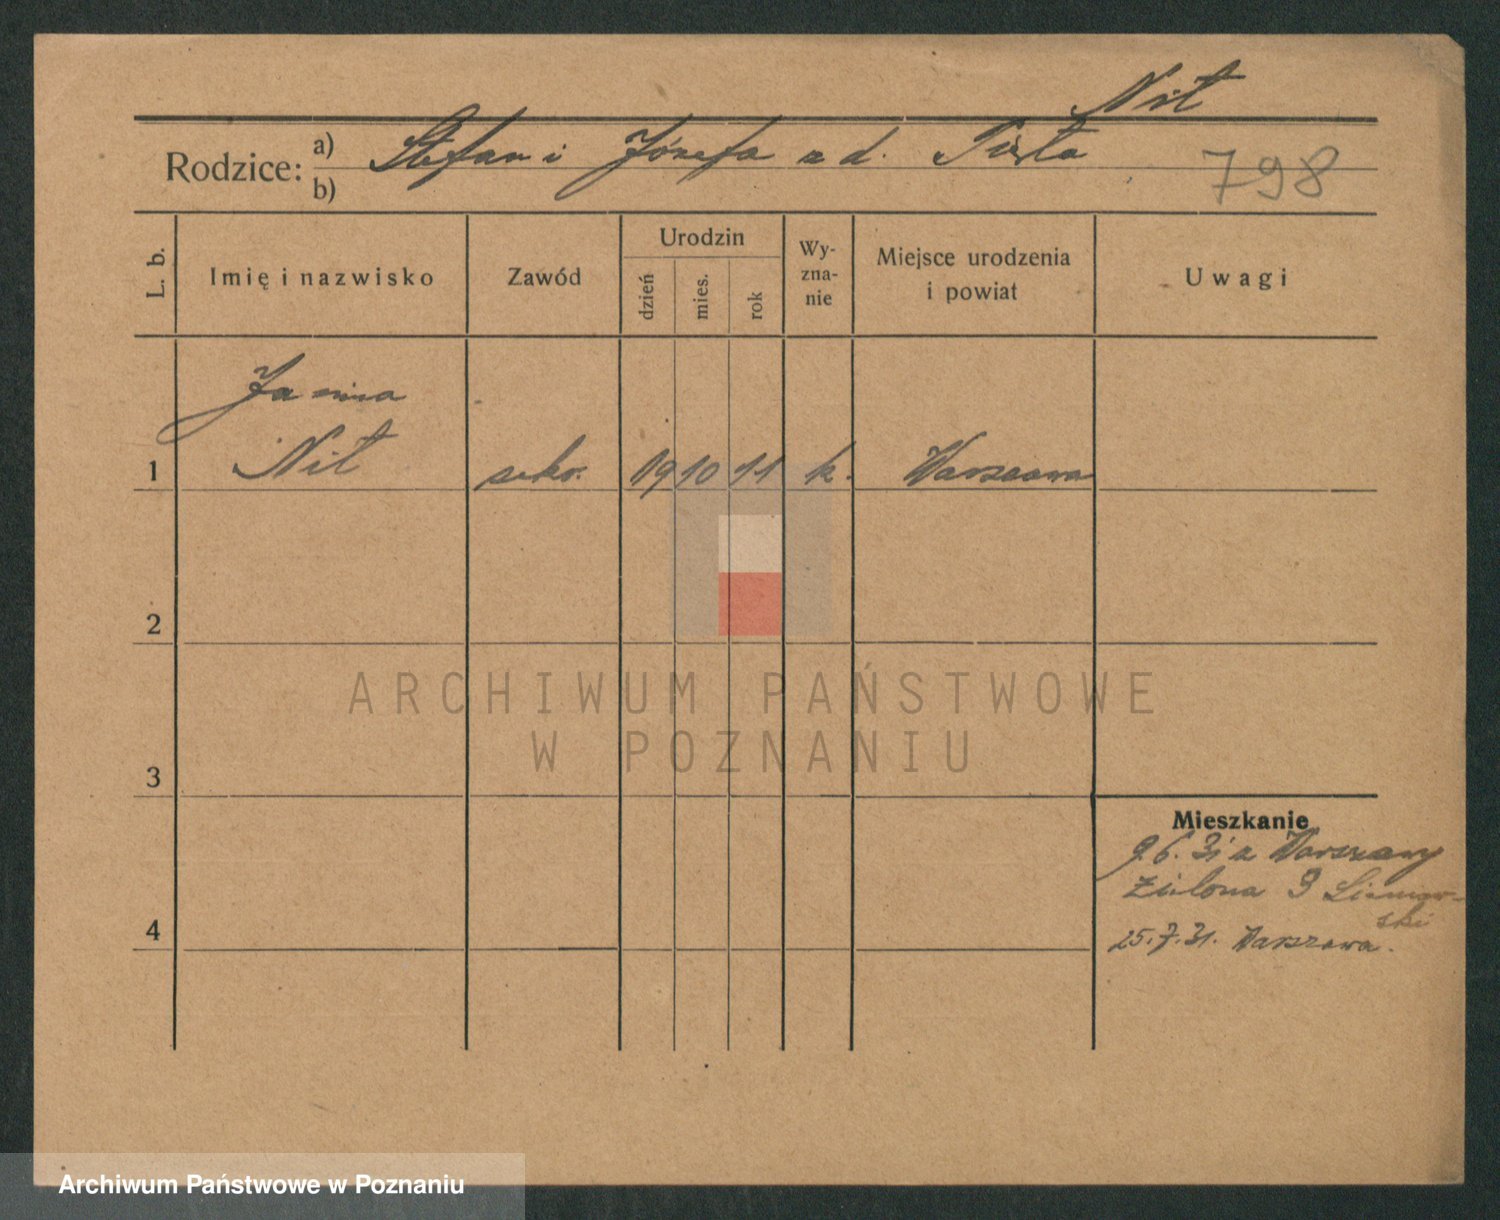 Nit
Rodzice: a) Stefan i Józefa z d.
b)
798
L. b.
Imię i nazwisko
Zawód
Urodzin
dzień
mies.
rok
Wy-
zna-
nie
Miejsce urodzenia
i powiat
Uwagi
Janina
1 Nit sekr. 19 10 11 k. Warszawa
2
ARCHIWUM PAŃSTWOWE
W POZNANIU
3
Mieszkanie
9.6.31 z Warszawy
Zielona 9
ski
4
25.7.31. Warszawa.
Archiwum Państwowe w Poznaniu